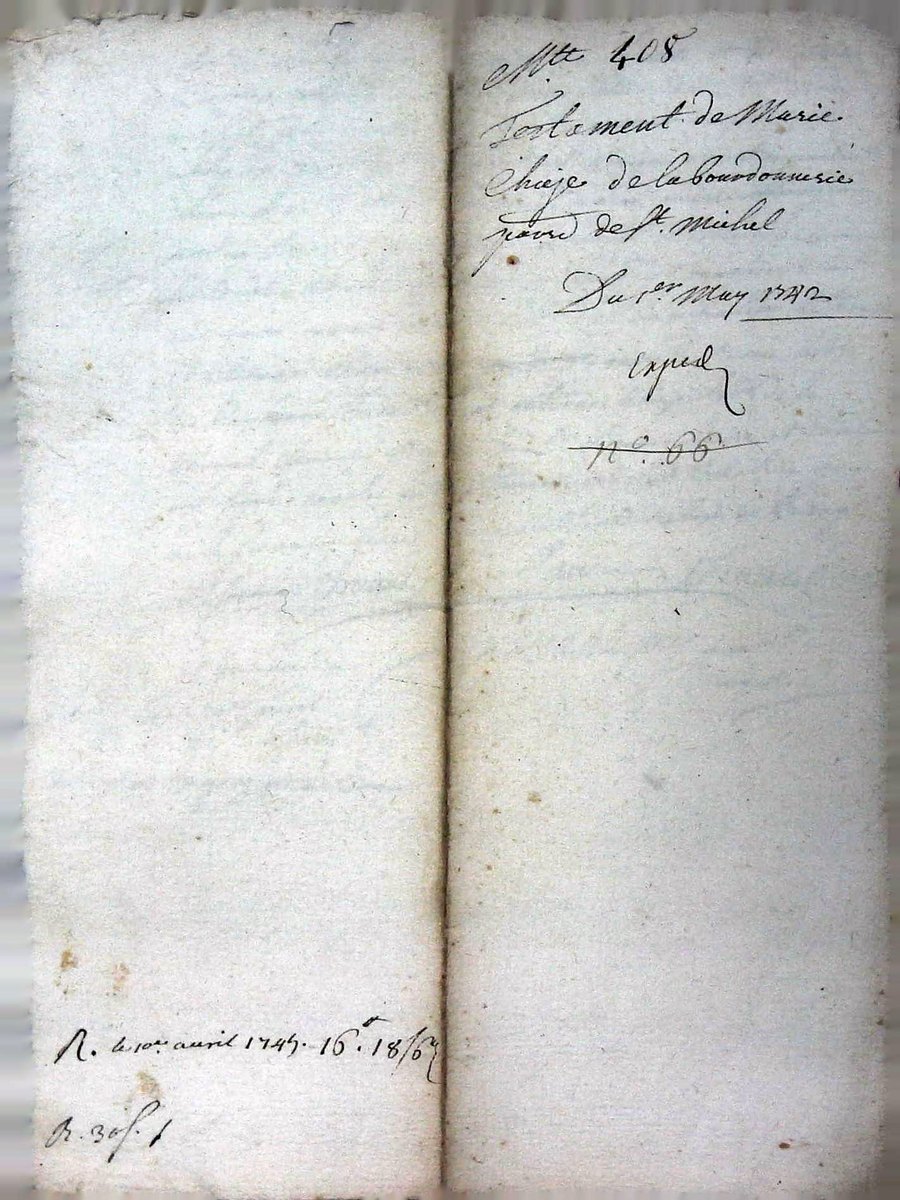 Mtte 408
Testament de Marie
Chieze de la bourdonnerie
parr de St. Michel
Du 1er May 1742
Exped
n° 66
R. le 10e avril 1745. 16# 18/6
R. 30s. 1